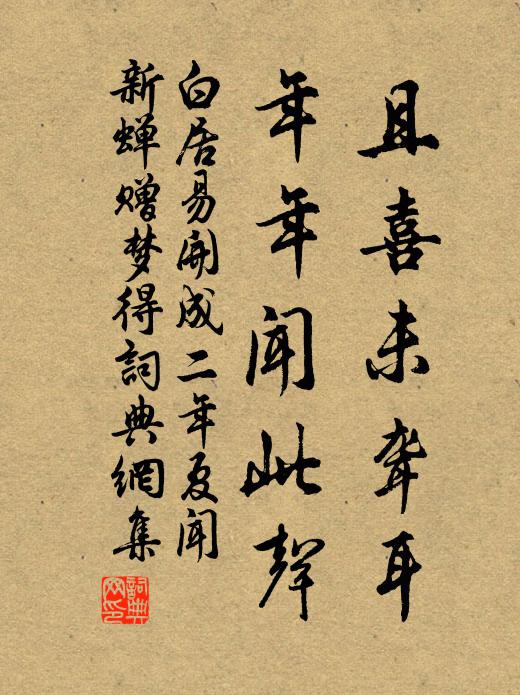 且喜未聋耳
年年闻此聲
白居易開成二年夏闻
新蝉赠梦得詞典網集
詞典网印